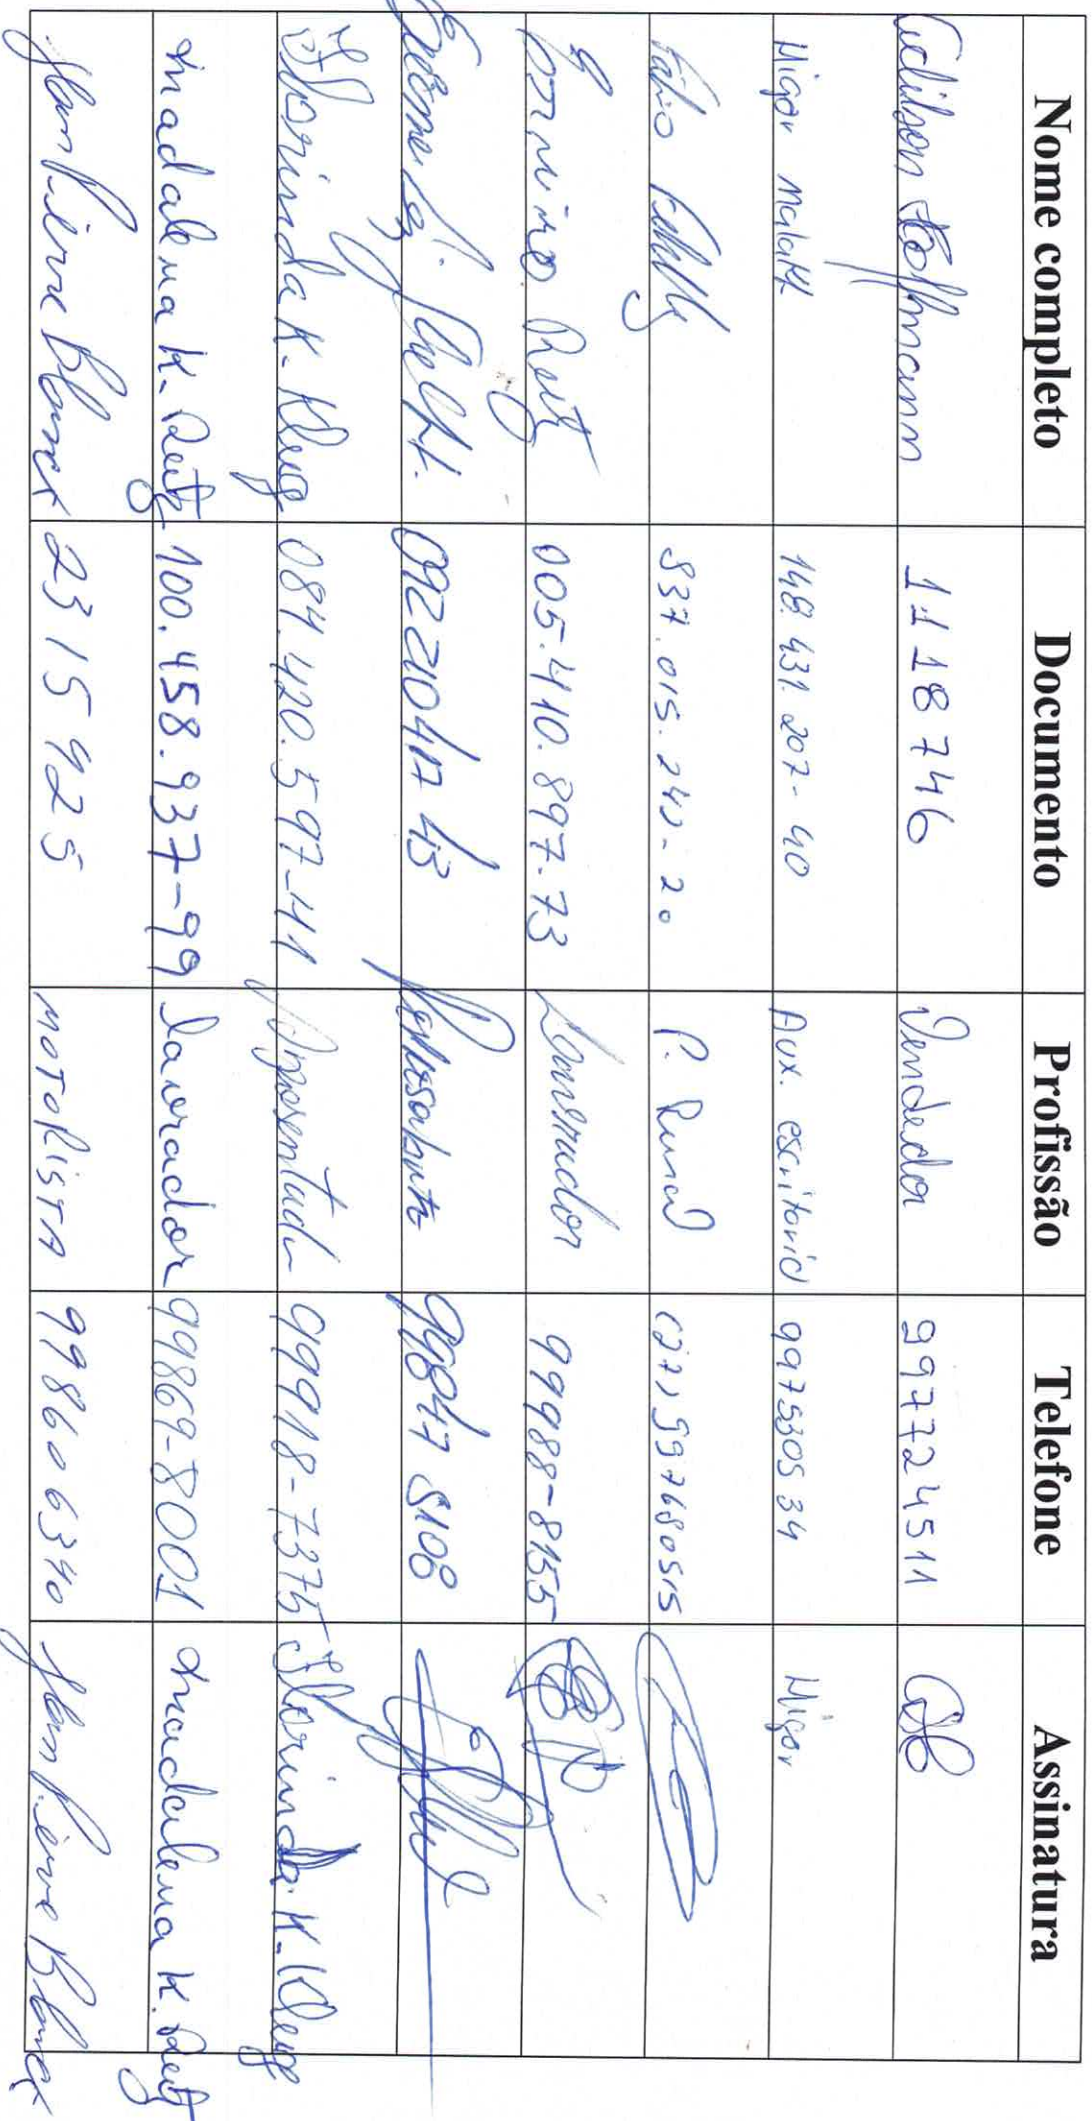 Nome completo Documento Profissão Telefone Assinatura
Hoffmann 1118746 Vendedor 997724511
Higor Malatt 148.431.207-40 Aux. escritorio 997530534 Higor
Fabio 837.015.247-20 P. Rural (27) 997680515
Reetz 005.410.897-73 Lavrador 99988-8155
09221041743 99847 5108
Florinda K. Kluge 084.420.597-41 Aposentada 99918-7375 Florinda K. Kluge
Madalena K. Reetz 100.458.937-99 lavrador 99869-8001 Madalena K. Reetz
Jean Pierre Blanck 2315925 MOTORISTA 998606340 Jean Pierre Blanck